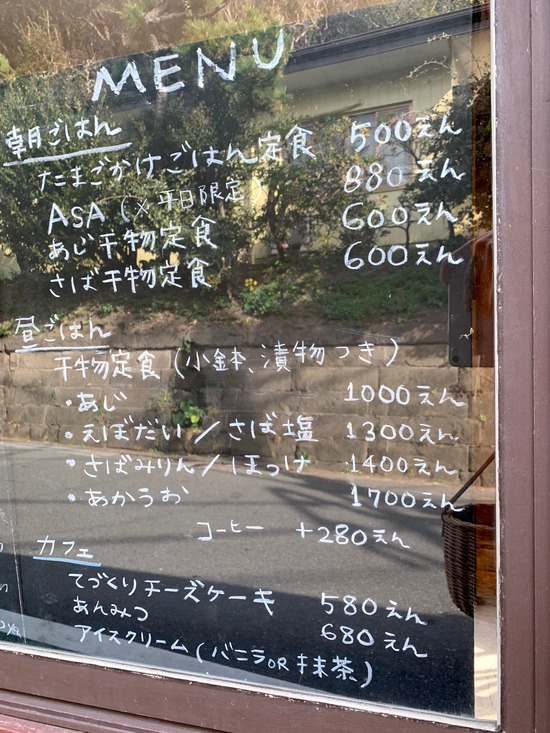 MENU
朝ごはん
たまごかけごはん定食 500えん
ASA (※平日限定) 880えん
あじ干物定食 600えん
さば干物定食 600えん
昼ごはん
干物定食 (小鉢、漬物つき)
・あじ 1000えん
・えぼだい/さば塩 1300えん
・さばみりん/ほっけ 1400えん
・あかうお 1700えん
コーヒー +280えん
カフェ
てづくりチーズケーキ 580えん
あんみつ 680えん
アイスクリーム (バニラOR抹茶)